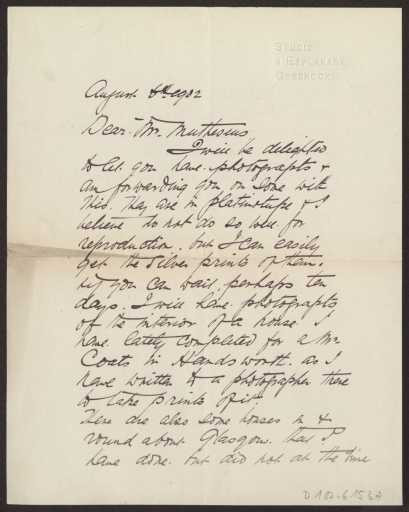 STUDIO
4 ESPLANADE
GREENOCK
August 6th 1902
Dear Mr. Muthesius
I will be delighted
to let you have photographs &
am forwarding you on some with
this. They are in platinotype & I
believe do not do so well for
reproduction. but I can easily
get the silver prints of them.
if you can wait perhaps ten
days. I will have photographs
of the interior of a house I
have lately completed for a Mr
Coats in Handsworth. as I
have written to a photographer there
to take prints of it.
There are also some houses in &
round about Glasgow. that I
have done. but did not at the time
D 102-6153 A